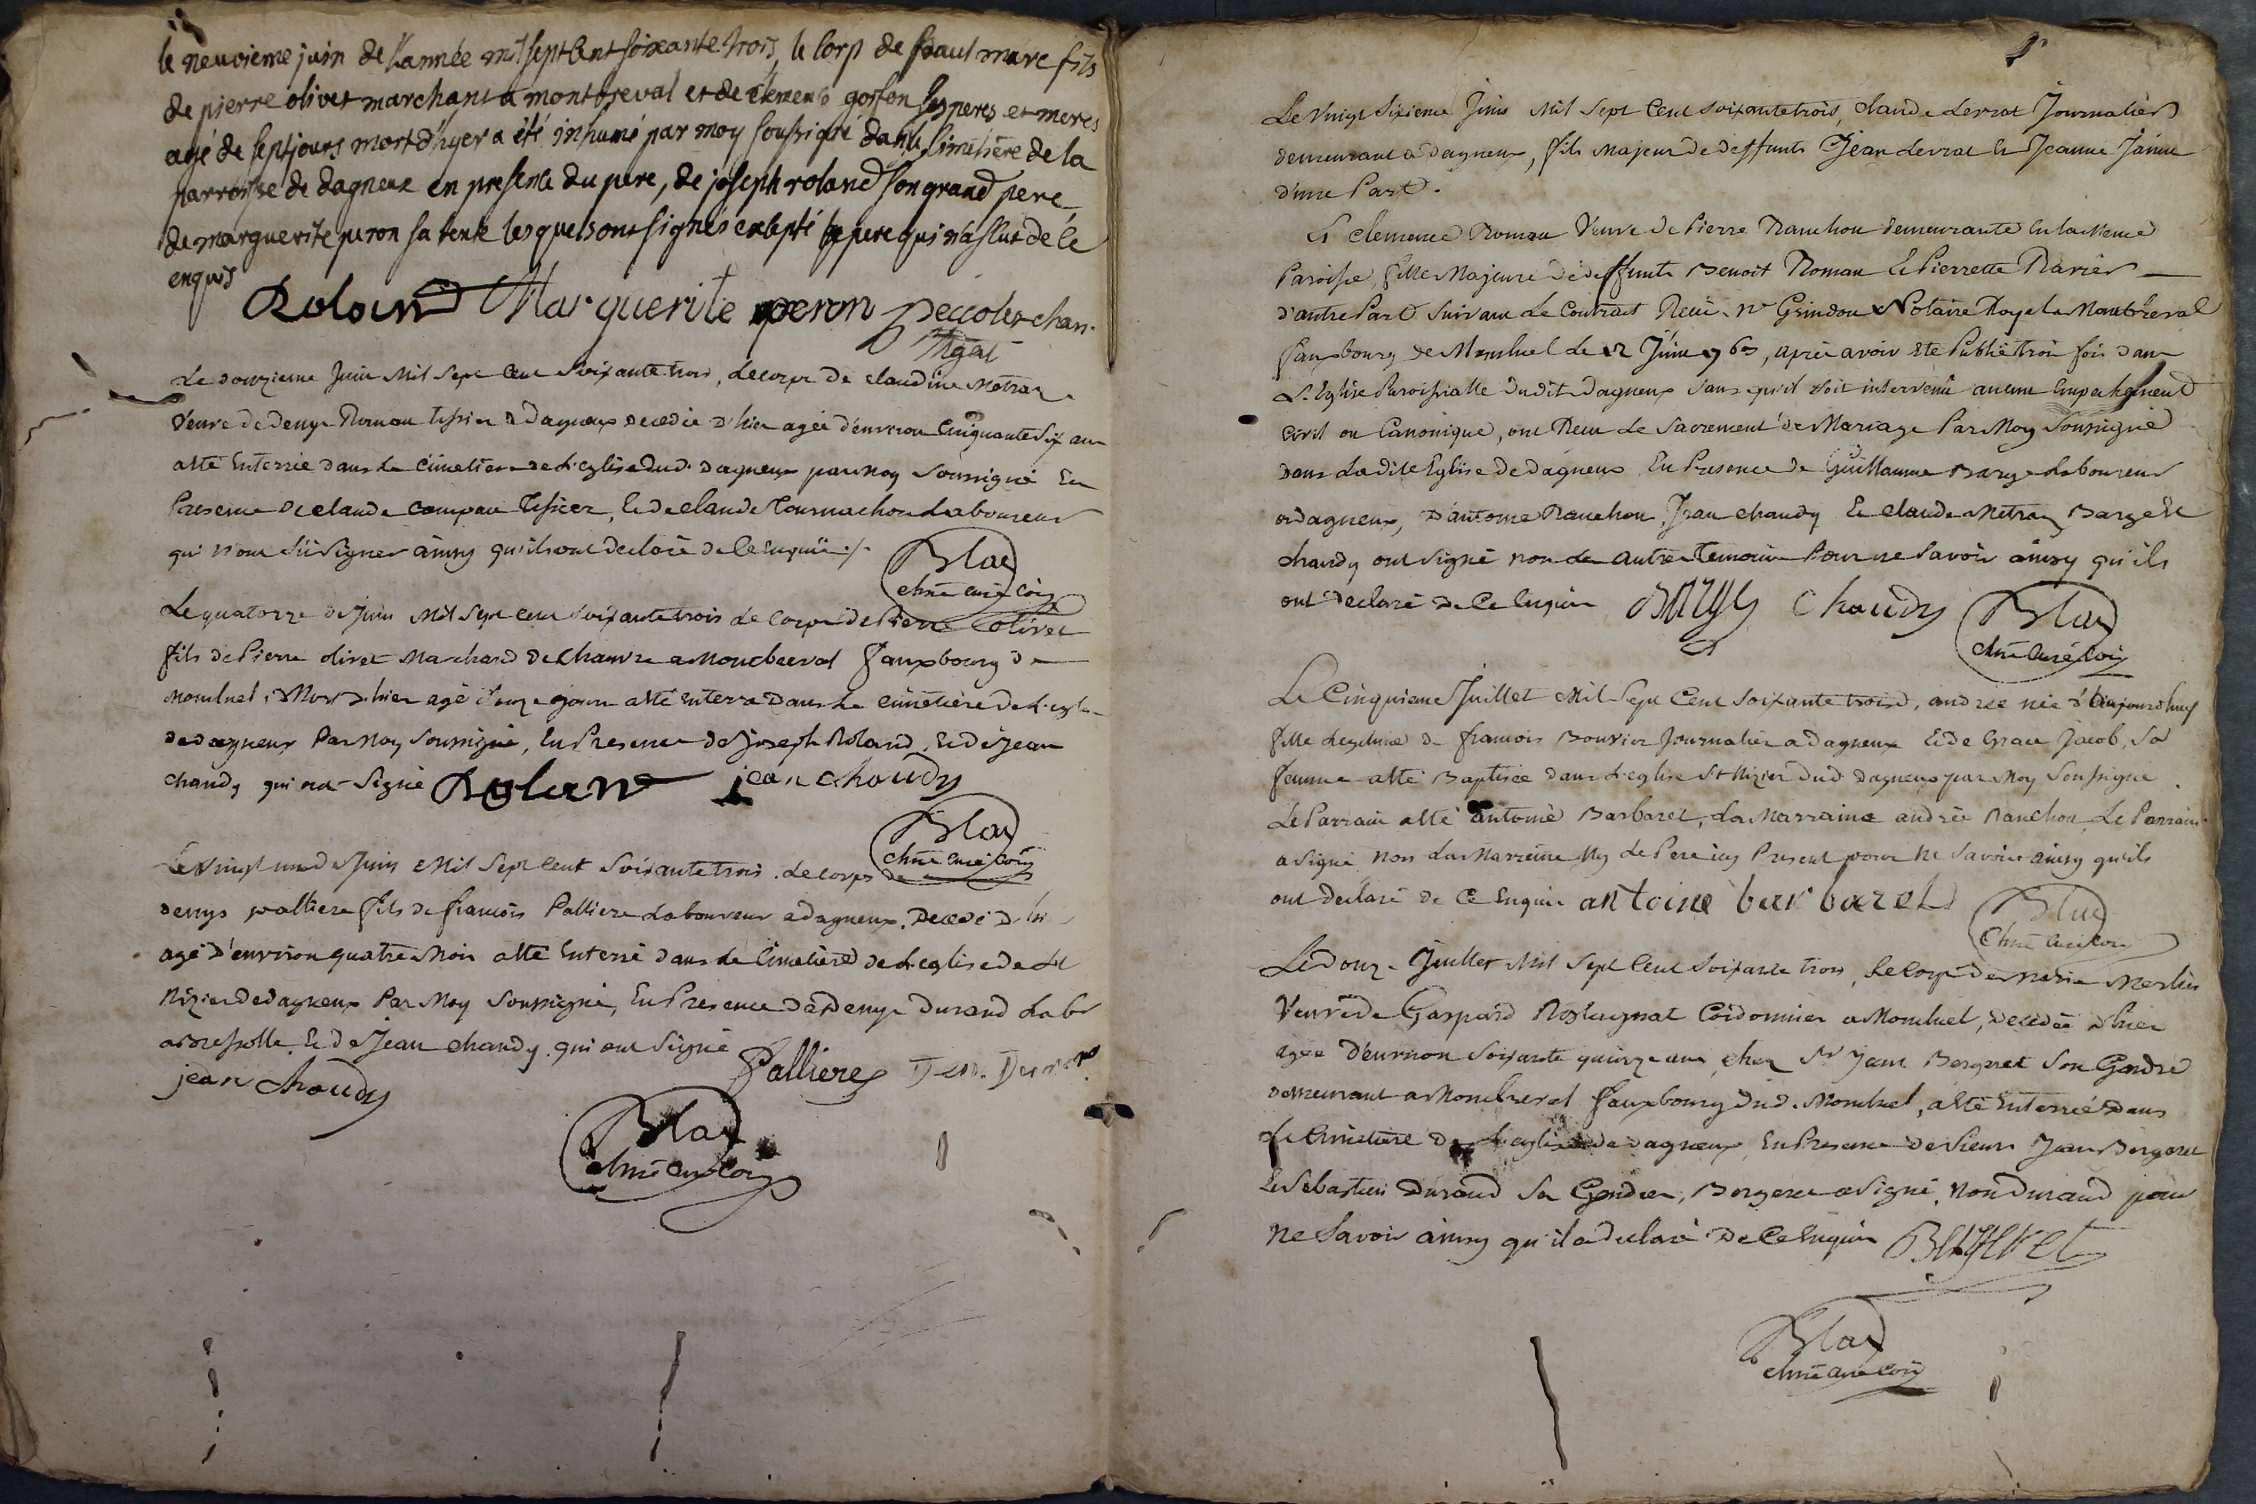 le neuvieme juin de l'année mil sept cent soixante trois, le corp de paul marc fils
de pierre olivet marchant a montbreval et de clemens gosson ses peres et meres
agé de sept jours mort d'hyer a été inhumé par moy soussigné dans le simetière de la
parroisse de dagneux en presence du pere, de joseph roland son grand pere
de marguerite peron sa tente lesquels ont signés excepté le pere qui n'a sçut de ce
enquis
Roland Marguerite peron Decolerchan
Le douzieme Juin Mil Sept Cent Soixante trois, Le corps de claudine Metraz
Veuve de Denys Roman tissier a Dagneux decedée d'hier agée d'environ Cinquante six ans
a été Enterrée dans Le Cimetiere de L'eglise dud. dagneux par moy Soussigné En
Presence de claude compan tissier, et de claude Tournachon Laboureur
qui n'ont sçü signer ainsy qu'ils ont declaré de ce enquis ./.
Blad
chne curé coig
Le quatorze de Juin Mil Sept Cent Soixante trois Le Corps de Pierre olivet
fils de Pierre olivet Marchand de chanvre a Moncbreval fauxbourg de
Monluel, Mort d'hier agé d'onze jours a été Enterré Dans Le cimetiere de L'eglise
de dagneux Par Moy Soussigné, En Presence de Joseph Roland, et de jean
chaudy qui ont Signé Roland jean choudy
Blad
chne curé coig
Le Vingt un de Juin Mil Sept Cent Soixante trois. Le corps de
denys palliere fils de françois Palliere Laboureur a dagneux. Decedé d'hier
agé d'environ quatre Mois a été Enterré dans Le Cimetiere de L'eglise de St
Nizier de dagneux Par Moy Soussigné, En Presence de Denys Durand Labr
a Bressolle et de Jean chaudy qui ont Signé
jean choudy Pallieres
Blad
chne curé coig
Le Vingt Sixieme Juin Mil Sept Cent Soixante trois, claude Levrat Journalier
demeurant a dagneux, fils Majeur de deffunts Jean Levrat et Jeanne Janin
d'une Part.
Et clemence Roman Veuve de Pierre Ranchon demeurante En la Meme
Paroisse, fille Majeure de deffunts Benoit Roman et Pierrette Ravier
d'autre Part Suivant Le Contrat Recu Me Grindon Notaire Royal a Montbreval
fauxbourg de Monluel Le 12 Juin 1763, aprés avoir Eté Publié trois fois dans
L'Eglise Paroissialle dudit dagneux Sans qu'il soit intervenu aucun Empechement
civil ou Canonique, ont Recu Le Sacrement de Mariage Par Moy Soussigné
dans Ladite Eglise de Dagneux En Presence de Guillaume Barge Laboureur
a dagneux, d'antoine Ranchon, Jean chaudy et claude Metraz Barge et
chaudy ont signé non Les autres temoins Pour ne Savoir ainsy qu'ils
ont declaré de Ce Enquis Barge Choudy
Blad
chne curé coig
Le Cinquieme Juillet Mil Sept Cent Soixante trois, andrée née d'aujourdhuy
fille Legitime de francois Bouvier Journalier a dagneux et de Grace Jacob, Sa
femme a été Baptisée dans L'eglise St Nizier dud dagneux par Moy Soussigné
Le Parrain a été antoine Barbaret, La Marraine andrée Ranchon, Le Parrain
a signé non La Marraine Ny Le Pere icy Present pour ne savoir ainsy qu'ils
ont declaré de Ce Enquis antoine barbaret
Blad
chne curé coig
Le Douze Juillet Mil Sept Cent Soixante trois, Le corps de Marie Merlin
Veuve de Gaspard Rostagnat Cordonnier a Monluel, decedée d'hier
agée d'environ soixante quinze ans, chez Sr Jean Bergeret Son Gendre
demeurant a Monbreval fauxbourg dud. Monluel, a été Enterrée Dans
Le Cimetiere de L'eglise de dagneux, En Presence de Sieur Jean Bergeret
et Sebastien Durand Ses Gendres, Bergeret a Signé, Non Durand pour
ne Savoir ainsy qu'il a declaré De Ce Enquis Bergeret
Blad
chne curé coig